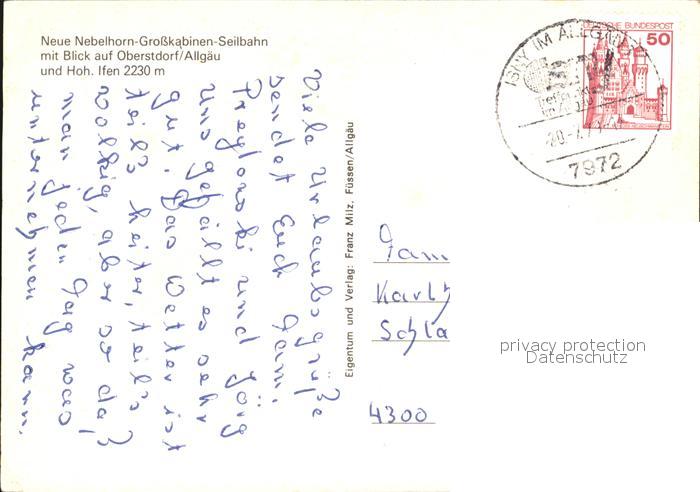 Neue Nebelhorn-Großkabinen-Seilbahn
mit Blick auf Oberstdorf/Allgäu
und Hoh. Ifen 2230 m
Viele Urlaubsgrüße
sendet Euch Fam.
und Jörg
Uns gefällt es sehr
gut. Das Wetter ist
teils heiter, teils
wolkig, aber so daß
man jeden Tag was
unternehmen kann.
Eigentum und Verlag: Franz Milz, Füssen/Allgäu
DEUTSCHE BUNDESPOST
50
ISNY IM ALLGÄU
7972
Fam
Schla
4300
privacy protection
Datenschutz